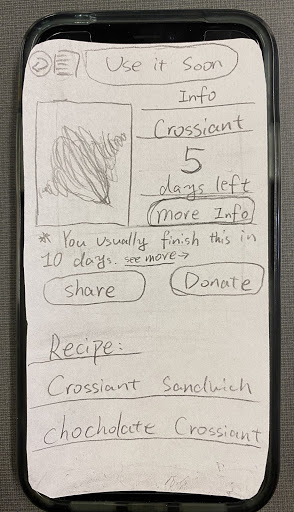 Use it soon
Info
Crossiant
5
days left
more Info
* You usually finish this in
10 days. see more→
share
Donate
Recipe:
Crossiant Sandwich
chocholate Crossiant